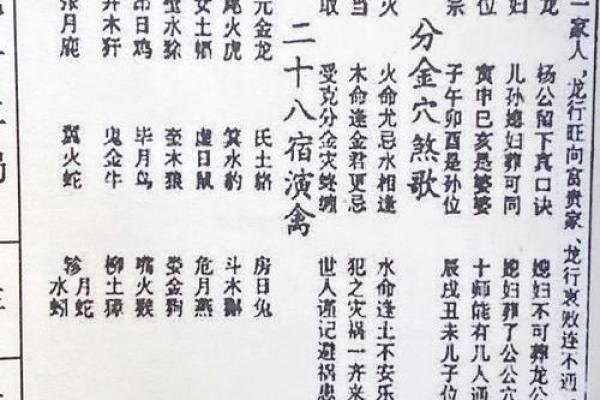 一家人,龙行旺向富贵家、龙行衰败连不通
龙 杨公留下真口诀 媳妇不可葬龙公
妇 儿孙媳妇葬可同 媳妇葬了公公穴
位 寅申巳亥是婆婆 十师能有几人通
宗 子午卯酉是孙位 辰戌丑未儿子位
分金穴煞歌
火 火命尤忌水相逢 水命逢土不安乐
当 木命逢金君更忌 犯之灾祸一齐来
取 受克分金灾终缠 世人谨记避祸患
二十八宿演禽
元金龙 氐土貉 房日兔
尾火虎 箕水豹 斗木獬
女土蝠 虚日鼠 危月燕
水㺄 奎木狼 娄金狗
日鸡 毕月乌 嘴火猴
井木犴 鬼金牛 柳土獐
张月鹿 翼火蛇 轸月蛇
水蚓